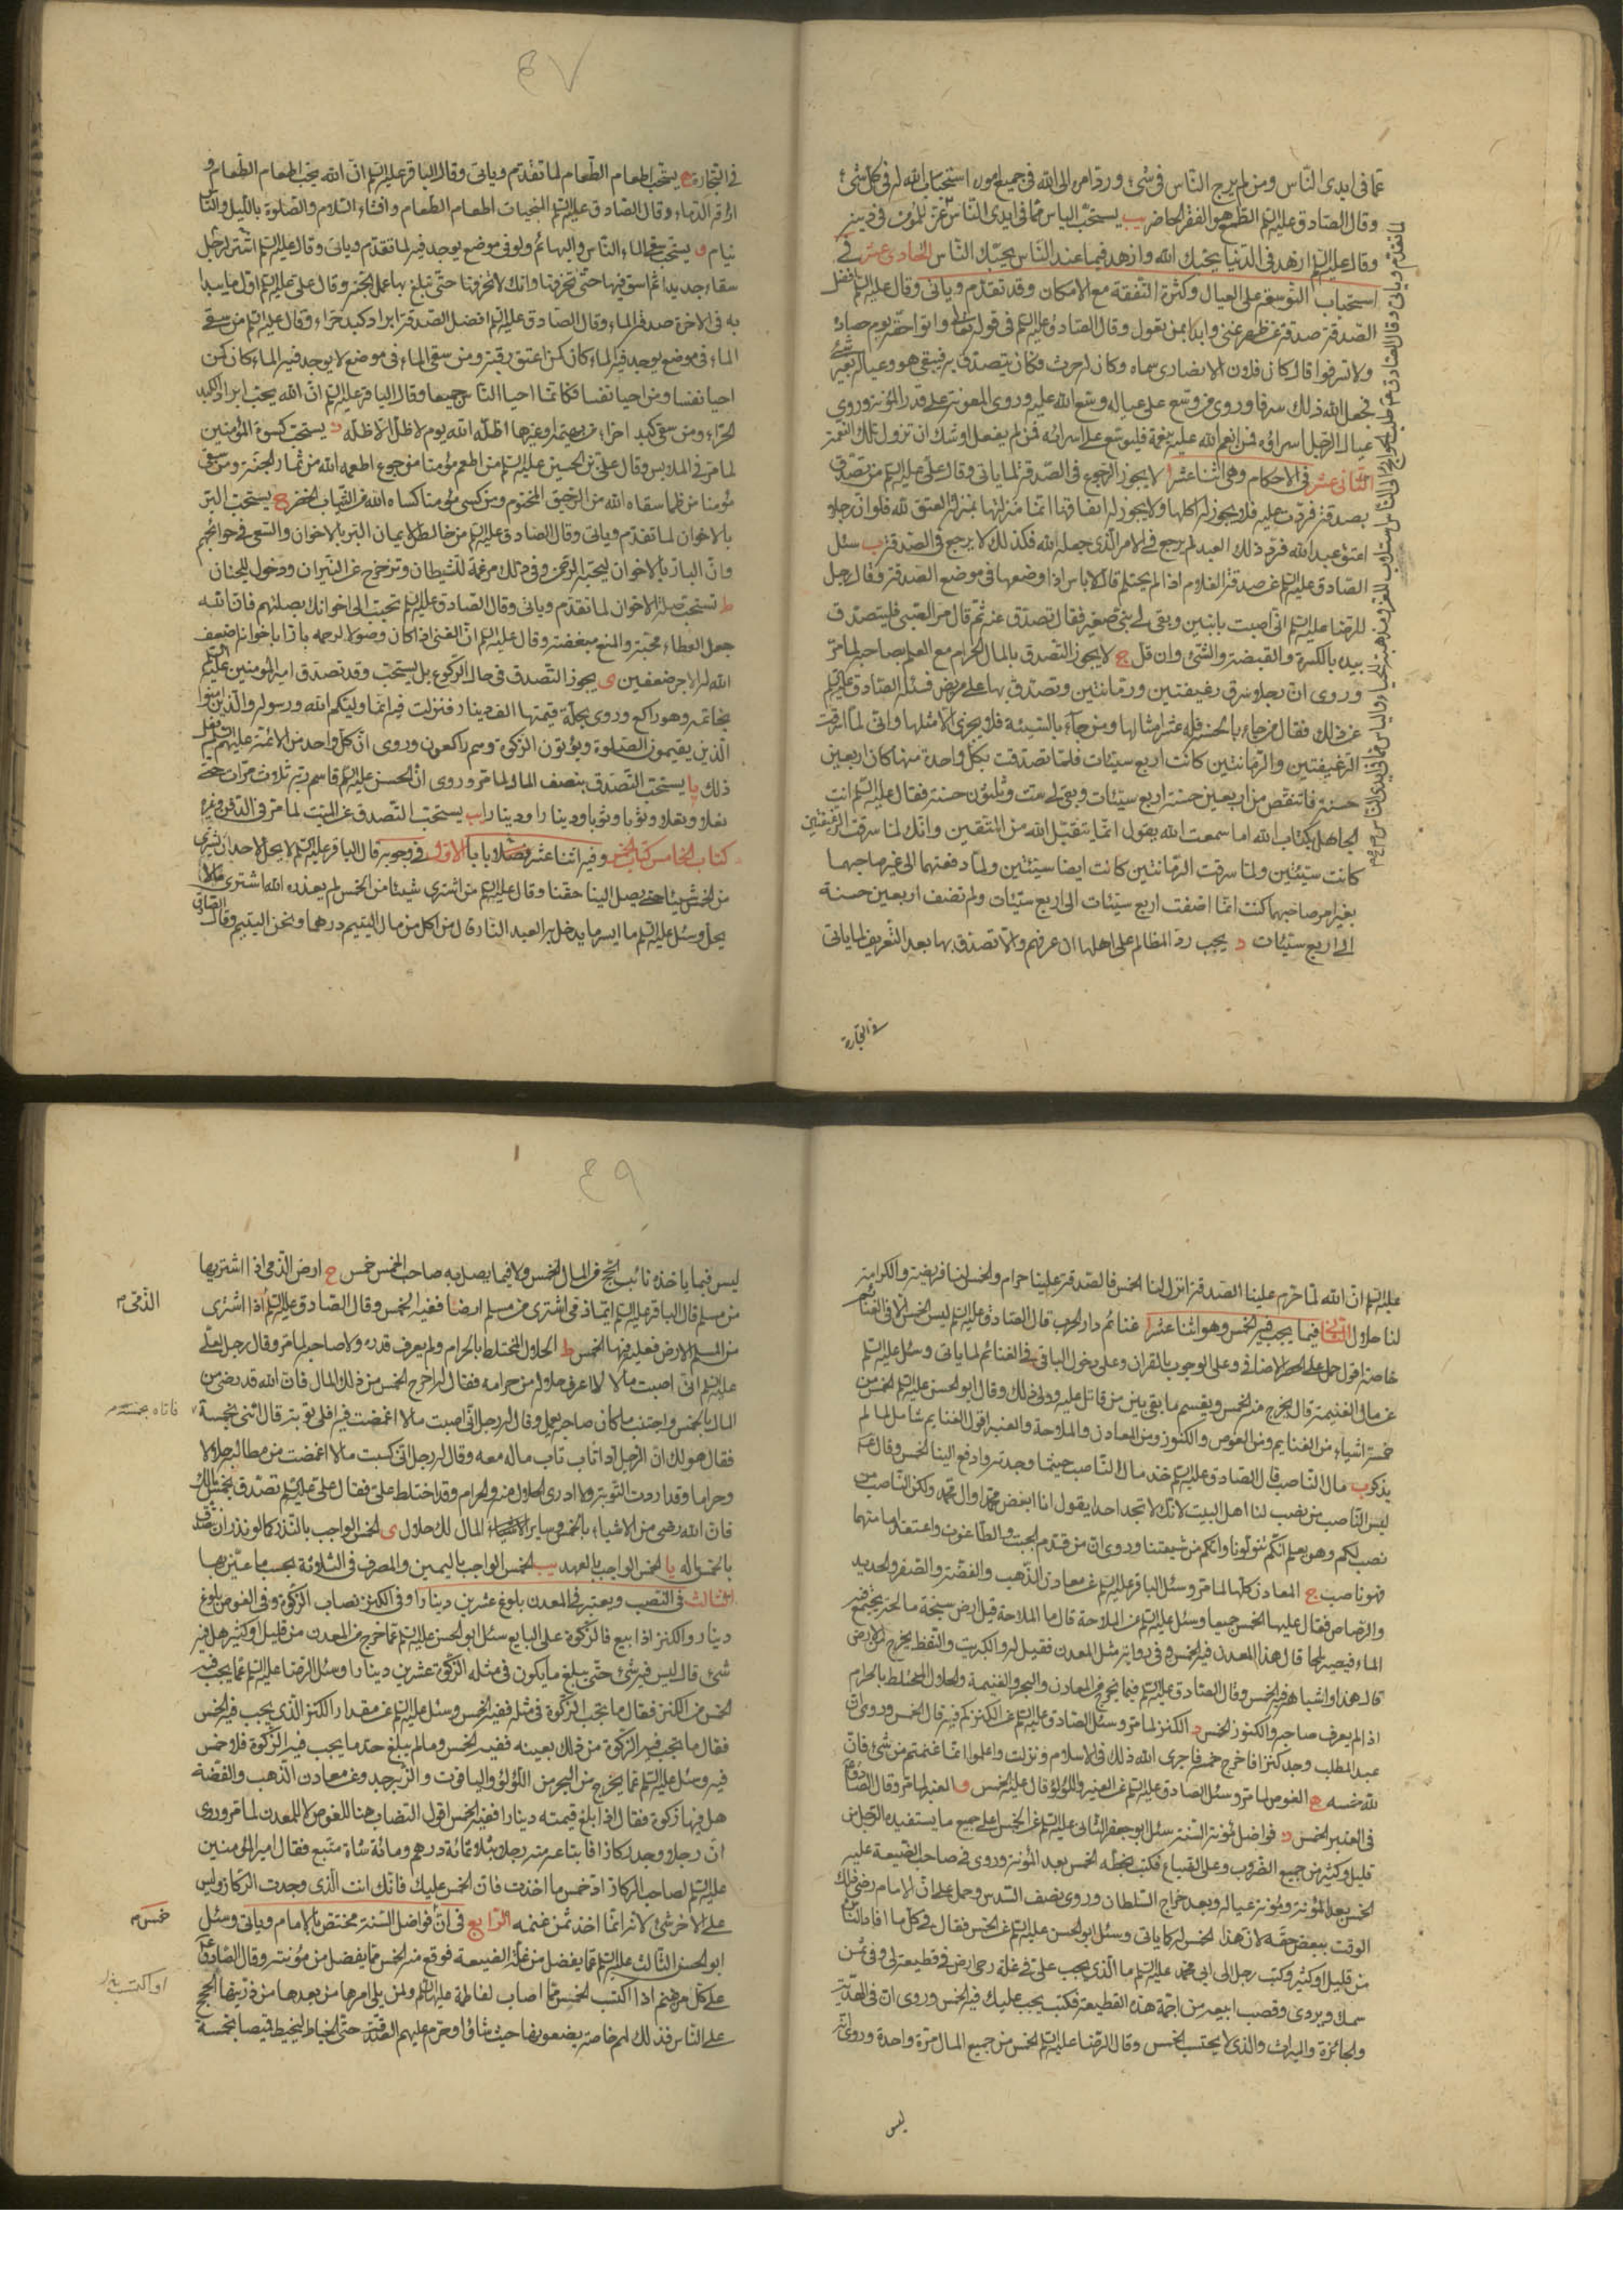 عمّا فى ايدى النّاس ومن لم يرج النّاس فى شئ ورد امره الى الله فى جميع اموره استجاب الله له فى كل شئ
وقال الصّادق عليه السّلم الطمع هو الفقر الحاضر يب يستحب الياس ممّا فى ايدى النّاس عزّ للمؤمن فى دينه
وقال عليه السلم ازهد فى الدّنيا يحبّك الله وازهد فيما عند النّاس يحبّك النّاس الحادى عشر فى
استحباب التوسعة على العيال وكثرة النّفقة مع الامكان وقد تقدّم وياتى وقال عليه السلم افضل
الصّدقة صدقة عن ظهر غنى وابدا بمن تعول وقال الصّادق عليه السلم فى قوله تعالى واتوا حقّه يوم حصاده
ولا تسرفوا قال كان فلان الانصارى سماه وكان له حرث وكان يتصدّق به فيبقى هو وعياله بغير شئ
فجعل الله ذلك سرفا وروى من وسّع على عياله وسّع الله عليه وروى المعونة على قدر المؤنة وروى
عيال الرّجل اسراؤه فمن انعم الله عليه نعمة فليوسّع على اسرائه فمن لم يفعل اوشك ان تزول تلك النّعمة
الثّانى عشر فى الاحكام وهى اثنا عشر ا لا يجوز الرّجوع فى الصّدقة لما ياتى وقال علىّ عليه السلم من تصدّق
بصدقة فردّت عليه فلا يجوز له اكلها ولا يجوز له انفاقها انّما منزلتها بمنزلة العتق لله فلو انّ رجلا
اعتق عبدا لله فردّ ذلك العبد لم يرجع فى الامر الّذى جعله الله فكذلك لا يرجع فى الصّدقة ب سئل
الصّادق عليه السلم عن صدقة الغلام اذا لم يحتلم قال لا باس اذا وضعها فى موضع الصّدقة وقال رجل
للرّضا عليه السلم انّى اصبت بابنين وبقى لى بنىّ صغير فقال تصدّق عنه ثمّ قال مر الصّبى فليتصدّق
بيده بالكسرة والقبضة والشّئ وان قل ج لا يجوز التّصدق بالمال الحرام مع العلم بصاحبه لما مرّ
وروى انّ رجلا سرق رغيفين ورمّانتين وتصدّق بها على مريض فسئله الصّادق عليه السلم
عن ذلك فقال من جاء بالحسنة فله عشر امثالها ومن جاء بالسّيئة فلا يجزى الّا مثلها وانّى لمّا سرقت
الرّغيفين والرّمانتين كانت اربع سيّئات فلمّا تصدّقت بكل واحدة منها كان اربعين
حسنة فانتقص من اربعين حسنة اربع سيّئات وبقى لى ست وثلثون حسنة فقال عليه السلم انت
الجاهل بكتاب الله اما سمعت الله يقول انّما يتقبّل الله من المتّقين وانّك لمّا سرقت الرّغيفين
كانت سيّئتين ولمّا سرقت الرّمانتين كانت ايضا سيّئتين ولمّا دفعتهما الى غير صاحبهما
بغير امر صاحبهما كنت انّما اضفت اربع سيّئات الى اربع سيّئات ولم تضف اربعين حسنة
الى اربع سيّئات د يجب ردّ المظالم على اهلها ان عرفهم والّا تصدّق بها بعد التّعريف لما ياتى
فى التجارة
٤٧
فى التّجارة ه يستحب اطعام الطّعام لما تقدّم وياتى وقال الباقر عليه السلم انّ الله يحب اطعام الطّعام و
اراقة الدّماء وقال الصّادق عليه السلم المنجيات اطعام الطّعام وافشاء السّلام والصّلوة باللّيل والنّاس
نيام و يستحب سقى الماء النّاس والبهائم ولو فى موضع يوجد فيه لما تقدّم وياتى وقال عليه السلم اشتر لرجل
سقاء جديدا ثم اسق فيها حتّى تخرقها فانّك لا تخرقها حتّى تبلغ بها عمل الجنّة وقال علىّ عليه السلم اول ما يبدا
به فى الاخرة صدقة الماء وقال الصّادق عليه السلم افضل الصّدقة ابراد كبد حرّاء وقال عليه السلم من سقى
الماء فى موضع يوجد فيه الماء كان كمن اعتق رقبة ومن سقى الماء فى موضع لا يوجد فيه الماء كان كمن
احيا نفسا ومن احيا نفسا فكانّما احيا النّاس جميعا وقال الباقر عليه السلم انّ الله يحبّ ابراد الكبد
الحرّاء ومن سقى كبدا حرّاء من بهيمة او غيرها اظلّه الله يوم لا ظلّ الّا ظلّه ز يستحب كسوة المؤمنين
لما مرّ فى الملابس وقال علىّ بن الحسين عليه السلم من اطعم مؤمنا من جوع اطعمه الله من ثمار الجنّة ومن سقى
مؤمنا من ظما سقاه الله من الرّحيق المختوم ومن كسى مؤمنا كساه الله من الثّياب الخضر ح يستحب البرّ
بالاخوان لما تقدّم وياتى وقال الصّادق عليه السلم من خالص الايمان البرّ بالاخوان والسّعى فى حوائجهم
وانّ البارّ بالاخوان ليحبّه الرّحمن وفى ذلك مرغمة للشّيطان وتزحزح عن النّيران ودخول للجنان
ط تستحب صلة الاخوان لما تقدّم وياتى وقال الصّادق عليه السلم تحبّب الى اخوانك بصلتهم فانّ الله
جعل العطاء محبّة والمنع مبغضة وقال عليه السلم انّ الغنى اذا كان وصولا لرحمه بارّا باخوانه اضعف
الله له الاجر ضعفين ى يجوز التّصدق فى حال الرّكوع بل يستحب وقد تصدّق امير المؤمنين عليه السلم
بخاتمه وهو راكع وروى بحلّة قيمتها الف دينار فنزلت فيه انّما وليّكم الله ورسوله والّذين امنوا
الّذين يقيمون الصّلوة ويؤتون الزّكوة وهم راكعون وروى انّ كلّ واحد من الائمّة عليهم السلم فعل
ذلك يا يستحب التّصدق بنصف المال لما مرّ وروى انّ الحسن عليه السلم قاسم ربّه ثلاث مرّات حتى
نعلا ونعلا وثوبا وثوبا ودينارا ودينارا يب يستحب التّصدق عن الميّت لما مرّ فى الدّفن وغيره
كتاب الخامس كتاب الخمس وفيه اثنا عشر بابا الاوّل فى وجوبه قال الباقر عليه السلم لا يحلّ لاحد ان يشترى
من الخمس شيئا حتى يصل الينا حقّنا وقال عليه السلم من اشترى شيئا من الخمس لم يعذره الله اشترى ما لا
يحل وسئل عليه السلم ما ايسر ما يدخل به العبد النّار قال من اكل من مال اليتيم درهما ونحن اليتيم وقال الصّادق
عليه السلم انّ الله لمّا حرّم علينا الصّدقة انزل لنا الخمس فالصّدقة علينا حرام والخمس لنا فريضة والكرامة
لنا حلال الثّانى فيما يجب فيه الخمس وهو اثنا عشر ا غنائم دار الحرب قال الصّادق عليه السلم ليس الخمس الّا فى الغنائم
خاصّة اقول حمل على الحصر الاضافى وعلى الوجوب بالقران وعلى دخول الباقى فى الغنائم لما ياتى وسئل عليه السلم
عن مال الغنيمة قال يخرج منه الخمس ويقسم ما بقى بين من قاتل عليه وولى ذلك وقال ابو الحسن عليه السلم الخمس من
خمسة اشياء من الغنايم ومن الغوص والكنوز ومن المعادن والملاحة والعنبر اقول الغنايم شامل لما لم
يذكر ب مال النّاصب قال الصّادق عليه السلم خذ مال النّاصب حيثما وجدته وادفع الينا الخمس وقال عليه السلم
ليس النّاصب من نصب لنا اهل البيت لانّك لا تجد احدا يقول انا ابغض محمّدا وال محمّد ولكن النّاصب من
نصب لكم وهو يعلم انّكم تتولّونا وانّكم من شيعتنا وروى انّ من قدّم الجبت والطّاغوت واعتقد امامتهما
فهو ناصب ج المعادن كلّها لما مرّ وسئل الباقر عليه السلم عن معادن الذّهب والفضّة والصّفر والحديد
والرّصاص فقال عليها الخمس جميعا وسئل عليه السلم عن الملاحة قال ما الملاحة قيل ارض سبخة مالحة يجتمع فيه
الماء فيصير ملحا قال هذا المعدن فيه الخمس وفى رواية مثل المعدن فقيل له والكبريت والنّفط يخرج من الارض
قال هذا واشباهه فيه الخمس وقال الصّادق عليه السلم فيما يخرج من المعادن والبحر والغنيمة والحلال المختلط بالحرام
اذا لم يعرف صاحبه والكنوز الخمس د الكنز لما مرّ وسئل الصّادق عليه السلم عن الكنز كم فيه قال الخمس وروى انّ
عبد المطلب وجد كنزا فاخرج خمسه فاجرى الله ذلك فى الاسلام ونزلت واعلموا انّما غنمتم من شئ فانّ
لله خمسه ه الغوص لما مرّ وسئل الصّادق عليه السلم عن العنبر واللؤلؤ قال عليه الخمس و العنبر لما مرّ وقال الصّادق
فى العنبر الخمس ز فواضل مؤنة السّنة سئل ابو جعفر الثّانى عليه السلم عن الخمس اعلى جميع ما يستفيده الرّجل من
قليل وكثير من جميع الضّروب وعلى الضّياع فكتب بخطّه الخمس بعد المؤنة وروى فى صاحب الضّيعة عليه
الخمس بعد المؤنة ومؤنة عياله وبعد خراج السّلطان وروى نصف السّدس وحمل على انّ الامام رضى فى ذلك
الوقت ببعض حقّه لانّ هذا الخمس له كما ياتى وسئل ابو الحسن عليه السلم عن الخمس فقال فى كلّ ما افاد النّاس
من قليل او كثير وكتب رجل الى ابى محمّد عليه السلم ما الّذى يجب علىّ فى غلّة رحى ارض فى قطيعة لى وفى ثمن
سمك وبردى وقصب ابيعه من اجمة هذه القطيعة فكتب يجب عليك فيه الخمس وروى انّ فى الهديّة
والجائزة والميراث والّذى لا يحتسب الخمس وقال الرّضا عليه السلم الخمس من جميع المال مرّة واحدة وروى انّه
ليس
٤٩
ليس فيما ياخذه نائب الحج من المال الخمس ولا فيما يصل به صاحب الخمس خمس ح ارض الذّمى اذا اشتريها
من مسلم قال الباقر عليه السلم ايّما ذمّى اشترى من مسلم ارضا ففيه الخمس وقال الصّادق عليه السلم اذا اشترى
الذّمّى م
من المسلم الارض فعليه فيها الخمس ط الحلال المختلط بالحرام ولم يعرف قدره ولا صاحبه لما مرّ وقال رجل لعلىّ
عليه السلم انّى اصبت مالا لا اعرف حلاله من حرامه فقال له اخرج الخمس من ذلك المال فانّ الله قد رضى من
المال بالخمس واجتنب ما كان صاحبه يعلم وقال له رجل انّى اصبت مالا اغمضت فيه افلى توبة قال ائتنى بخمسه
فاتاه بخمسه م
فقال هو لك انّ الرّجل اذا تاب تاب ماله معه وقال له رجل انّى كسبت مالا اغمضت من مطالبه حلالا
وحراما وقد اردت التّوبة ولا ادرى الحلال منه والحرام وقد اختلط علىّ فقال علىّ عليه السلم تصدّق بخمس مالك
فانّ الله رضى من الاشياء بالخمس وساير المال لك حلال ى الخمس الواجب بالنّذر كما لو نذر ان يتصدّق
بالخمس ماله يا الخمس الواجب بالعهد يب الخمس الواجب باليمين والمصرف فى الثّلاثة بحسب ما عيّن بها
الثّالث فى النّصب ويعتبر فى المعدن بلوغ عشرين دينارا وفى الكنز نصاب الزّكوة وفى الغوص بلوغ
دينار والكنز اذا بيع فالزّكوة على البايع سئل ابو الحسن عليه السلم عمّا اخرج من المعدن من قليل او كثير هل فيه
شئ قال ليس فيه شئ حتّى يبلغ ما يكون فى مثله الزّكوة عشرين دينارا وسئل الرّضا عليه السلم عمّا يجب فيه
الخمس من الكنز فقال ما تجب الزّكوة فى مثله ففيه الخمس وسئل عليه السلم عن مقدار الكنز الّذى يجب فيه الخمس
فقال ما تجب فيه الزّكوة من ذلك بعينه ففيه الخمس وما لم يبلغ حد ما يجب فيه الزّكوة فلا خمس
فيه وسئل عليه السلم عمّا يخرج من البحر من اللّؤلؤ والياقوت والزّبرجد وعن معادن الذّهب والفضّة
هل فيها زكوة فقال اذا بلغ قيمته دينارا ففيه الخمس اقول النّصاب هنا للغوص لا للمعدن لما مرّ وروى
انّ رجلا وجد ركازا فابتاعه منه رجل بثلاثمائة درهم ومائة شاة متبع فقال امير المؤمنين
عليه السلم لصاحب الرّكاز ادّ خمس ما اخذت فانّ الخمس عليك فانّك انت الّذى وجدت الرّكاز وليس
على الاخر شئ لانّه انّما اخذ ثمن غنمه الرّابع فى انّ فواضل السّنة مختص بالامام وياتى وسئل
خمس م
ابو الحسن الثّالث عليه السلم عمّا يفضل من غلّة الضّيعة فوقع منه الخمس ممّا يفضل من مؤنته وقال الصّادق عليه السلم
على كلّ من غنم اذا اكتسب الخمس ممّا اصاب لفاطمة عليها السلم ولمن يلى امرها من بعدها من ذرّيتها الحجج
على النّاس فذلك لهم خاصّة يضعونها حيث شاؤا وحرّم عليهم الصّدقة حتّى الخياط ليخيط قميصا بخمسة